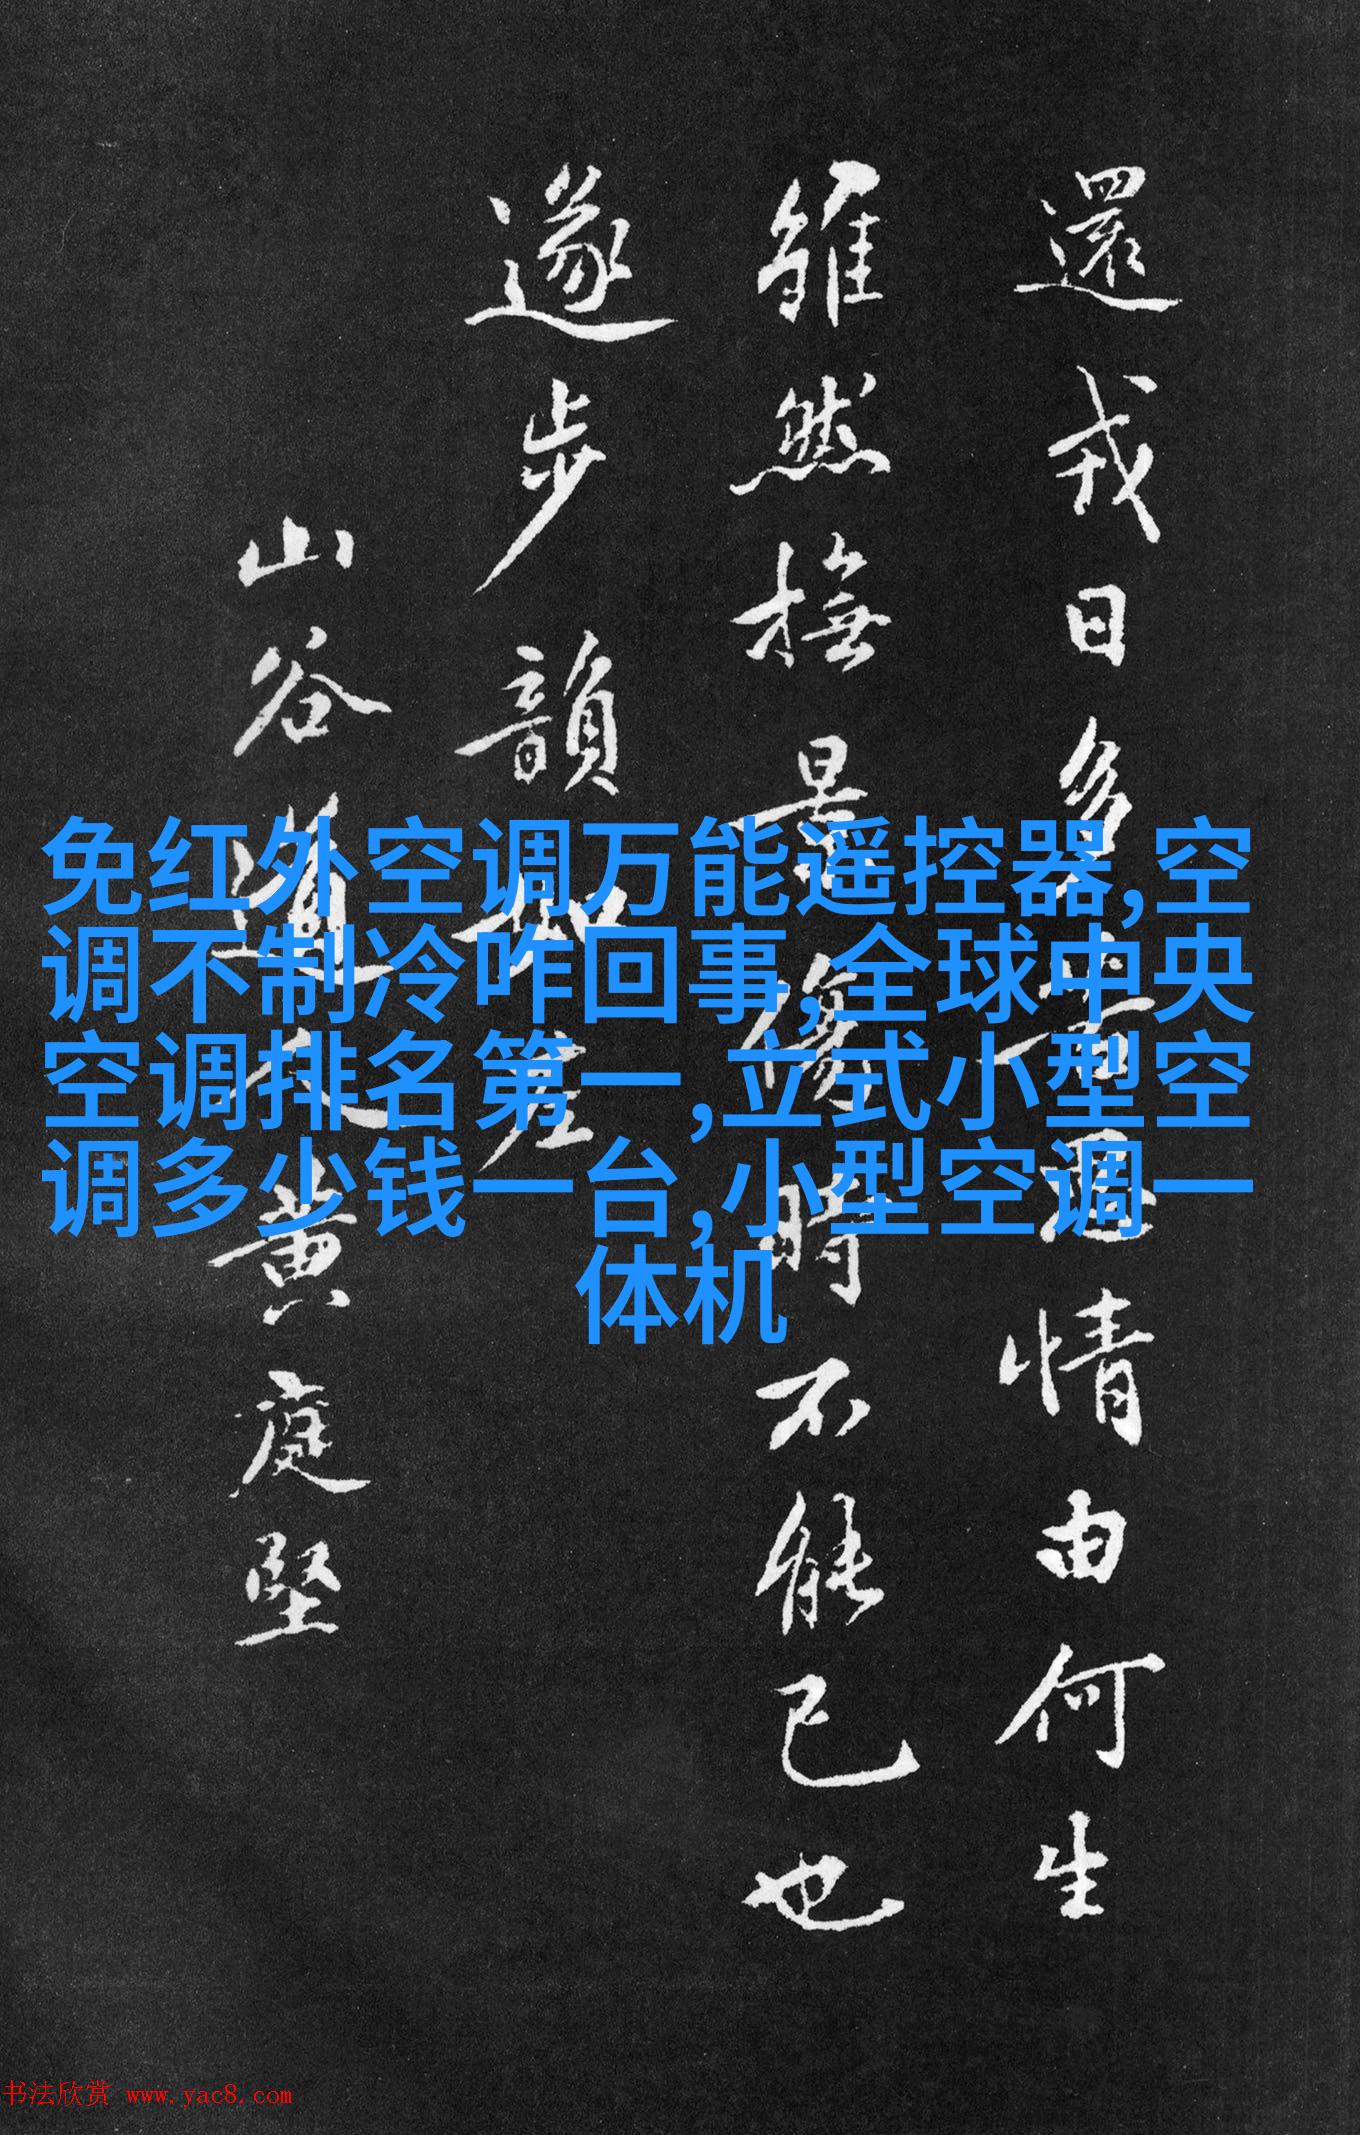 還戎日多
情由何生
雖然撫是
時不能已也
遂步韻如左
山谷道人黄庭堅
免红外空调万能遥控器,空
调不制冷咋回事,全球中央
空调排名第一,立式小型空
调多少钱一台,小型空调一
体机
书法欣赏 www.yac8.com